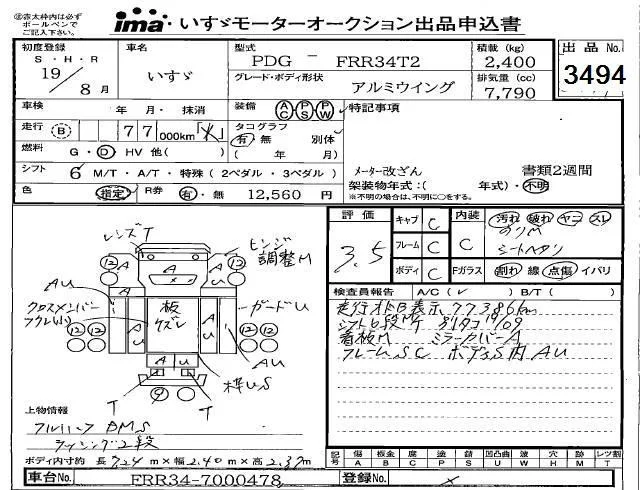 ㊟赤太枠内は必ず
ボールペンで
ご記入下さい。
ima・いすゞモーターオークション出品申込書
初度登録
S・H・R
19/8月
車名
いすゞ
型式
PDG － FRR34T2
グレード・ボディ形状
アルミウイング
積載 (kg)
2,400
排気量 (cc)
7,790
出品 No.
3494
車検
年 月・ 抹消
装備 AC PS PW
特記事項
走行 B 77 000km
タコグラフ
有・無 別体
( 年 月)
燃料 G・D HV 他( )
シフト 6 M/T・A/T・特殊 (2ペダル・3ペダル)
メーター改ざん 書類2週間
架装物年式：( 年式)・不明
※不明の場合は、不明に○をする。
色 指定 R券 有・無 12,560 円
評価
3.5
キャブ C
フレーム C
ボディ C
内装
C
汚れ 破れ ヤニ スレ
シートヘタリ
Fガラス 割れ 線 点傷 イバリ
検査員報告 A/C ( ✓ ) B/T ( )
走行オドB表示 77386km
シフト6段
看板M ミラーカバーA
フレームSC ボデS内AU
レンズT
ヒンジ
調整M
12 12
A A A
AU
クロスメンバー
板
ケズレ
ガードU
A U
12 12 12 12
AU
A U
枠US
T T
上物情報
フルハーフ BMS
ラッシング2段
ボディ内寸約 長 7.24 m×幅 2.40 m×高 2.37m
記号 傷 A 板金 B 腐 C 塗 P 錆 S 凹凸曲 U 波 W 穴 H 跡 M レツ割 T
車台No. FRR34-7000478
登録No.